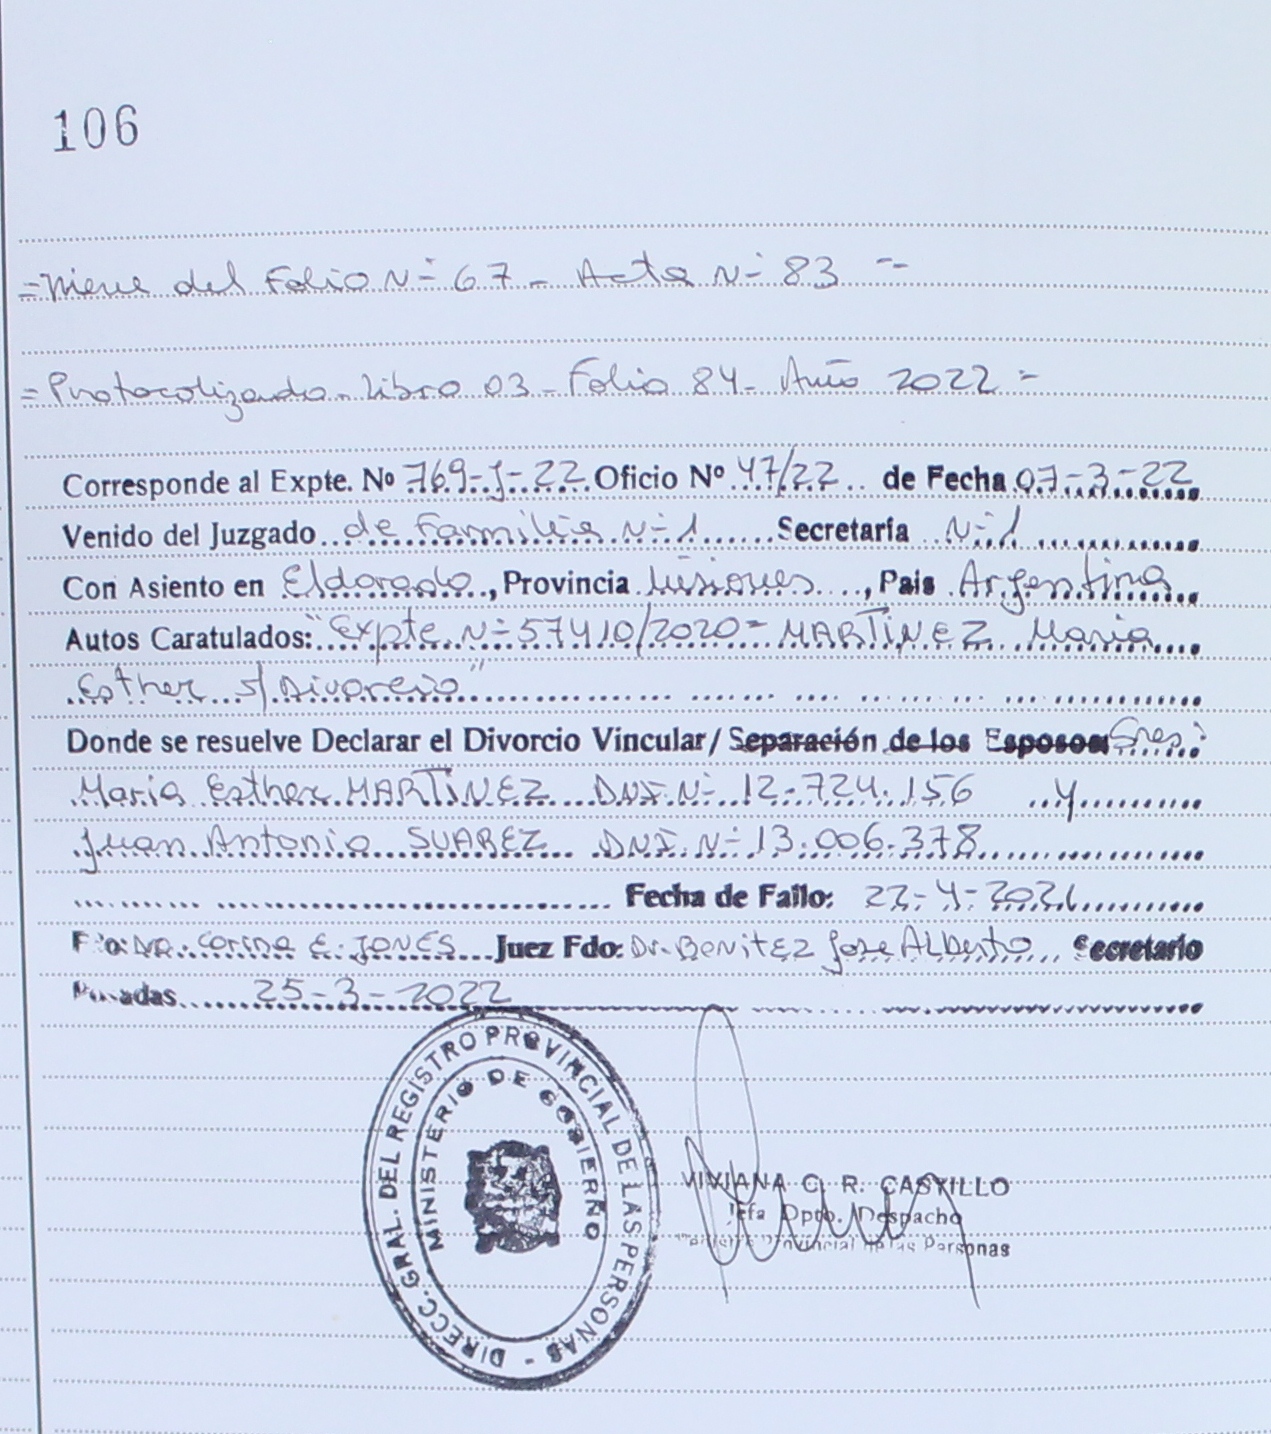 106
=Viene del Folio Nº 67 - Acta Nº 83 =
=Protocolizado - Libro 03 - Folio 84 - Año 2022 =
Corresponde al Expte. Nº 769-J-22 Oficio Nº 47/22 de Fecha 07-3-22
Venido del Juzgado de Familia Nº 1 Secretaría Nº 1
Con Asiento en Eldorado, Provincia Misiones, Pais Argentina
Autos Caratulados: "Expte Nº 57410/2020 - MARTINEZ Maria
Esther s/ Divorcio"
Donde se resuelve Declarar el Divorcio Vincular/ Separación de los Esposos Sres:
Maria Esther MARTINEZ DNI. Nº 12.724.156 y
Juan Antonio SUAREZ DNI. Nº 13.006.378
Fecha de Fallo: 22-4-2021
Fdo: Dra. Corina E. JONES Juez Fdo: Dr. BENITEZ Jose Alberto Secretario
Posadas 25-3-2022
DIRECC. GRAL. DEL REGISTRO PROVINCIAL DE LAS PERSONAS -
MINISTERIO DE GOBIERNO
VIVIANA C. R. CASTILLO
Jefa Dpto. Despacho
Provincial de las Personas